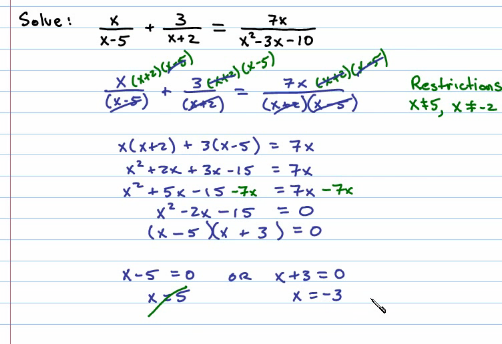 Solve: x/(x-5) + 3/(x+2) = 7x/(x²-3x-10)
x(x+2)(x-5)/(x-5) + 3(x+2)(x-5)/(x+2) = 7x(x+2)(x-5)/((x+2)(x-5))
Restrictions
x≠5, x≠-2
x(x+2) + 3(x-5) = 7x
x² + 2x + 3x - 15 = 7x
x² + 5x - 15 - 7x = 7x - 7x
x² - 2x - 15 = 0
(x - 5)(x + 3) = 0
x - 5 = 0 OR x + 3 = 0
x = 5 x = -3